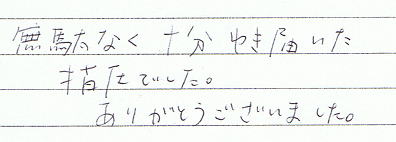 無駄なく 十分 ゆき届いた
指圧でした。
ありがとうございました。